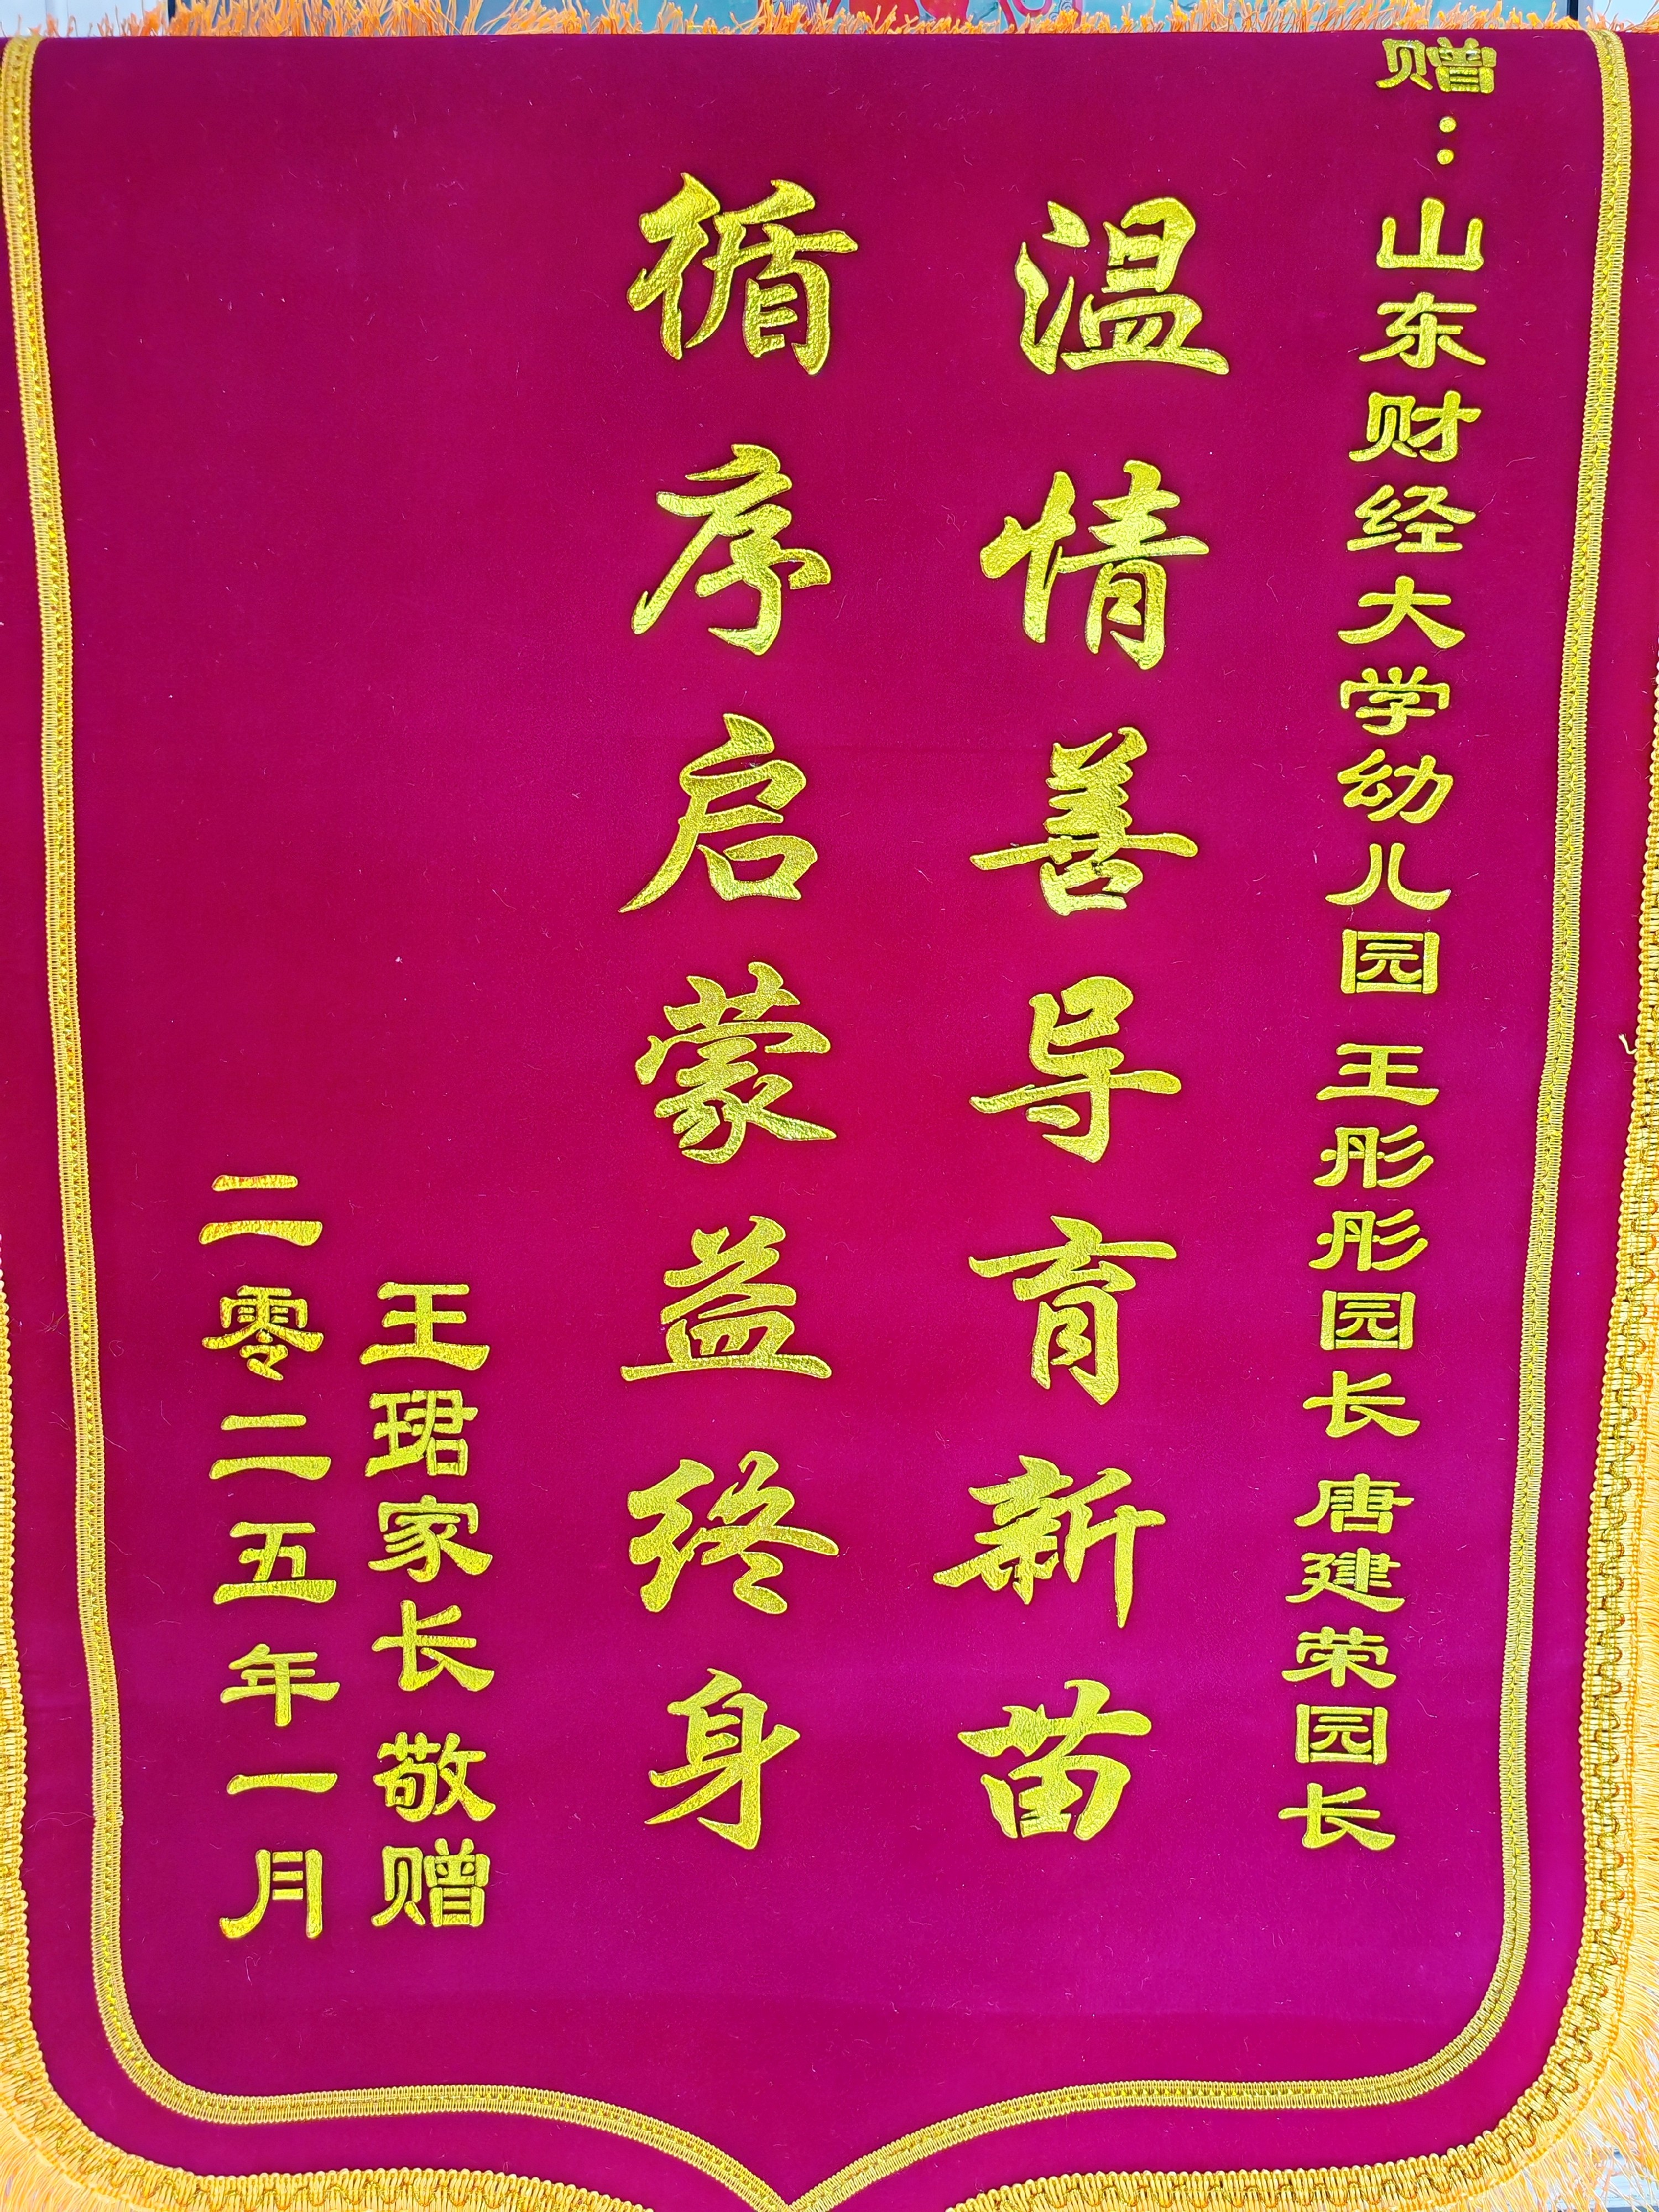 赠：山东财经大学幼儿园 王彤彤园长 唐建荣园长
温情善导育新苗
循序启蒙益终身
王珺家长 敬赠
二零二五年一月